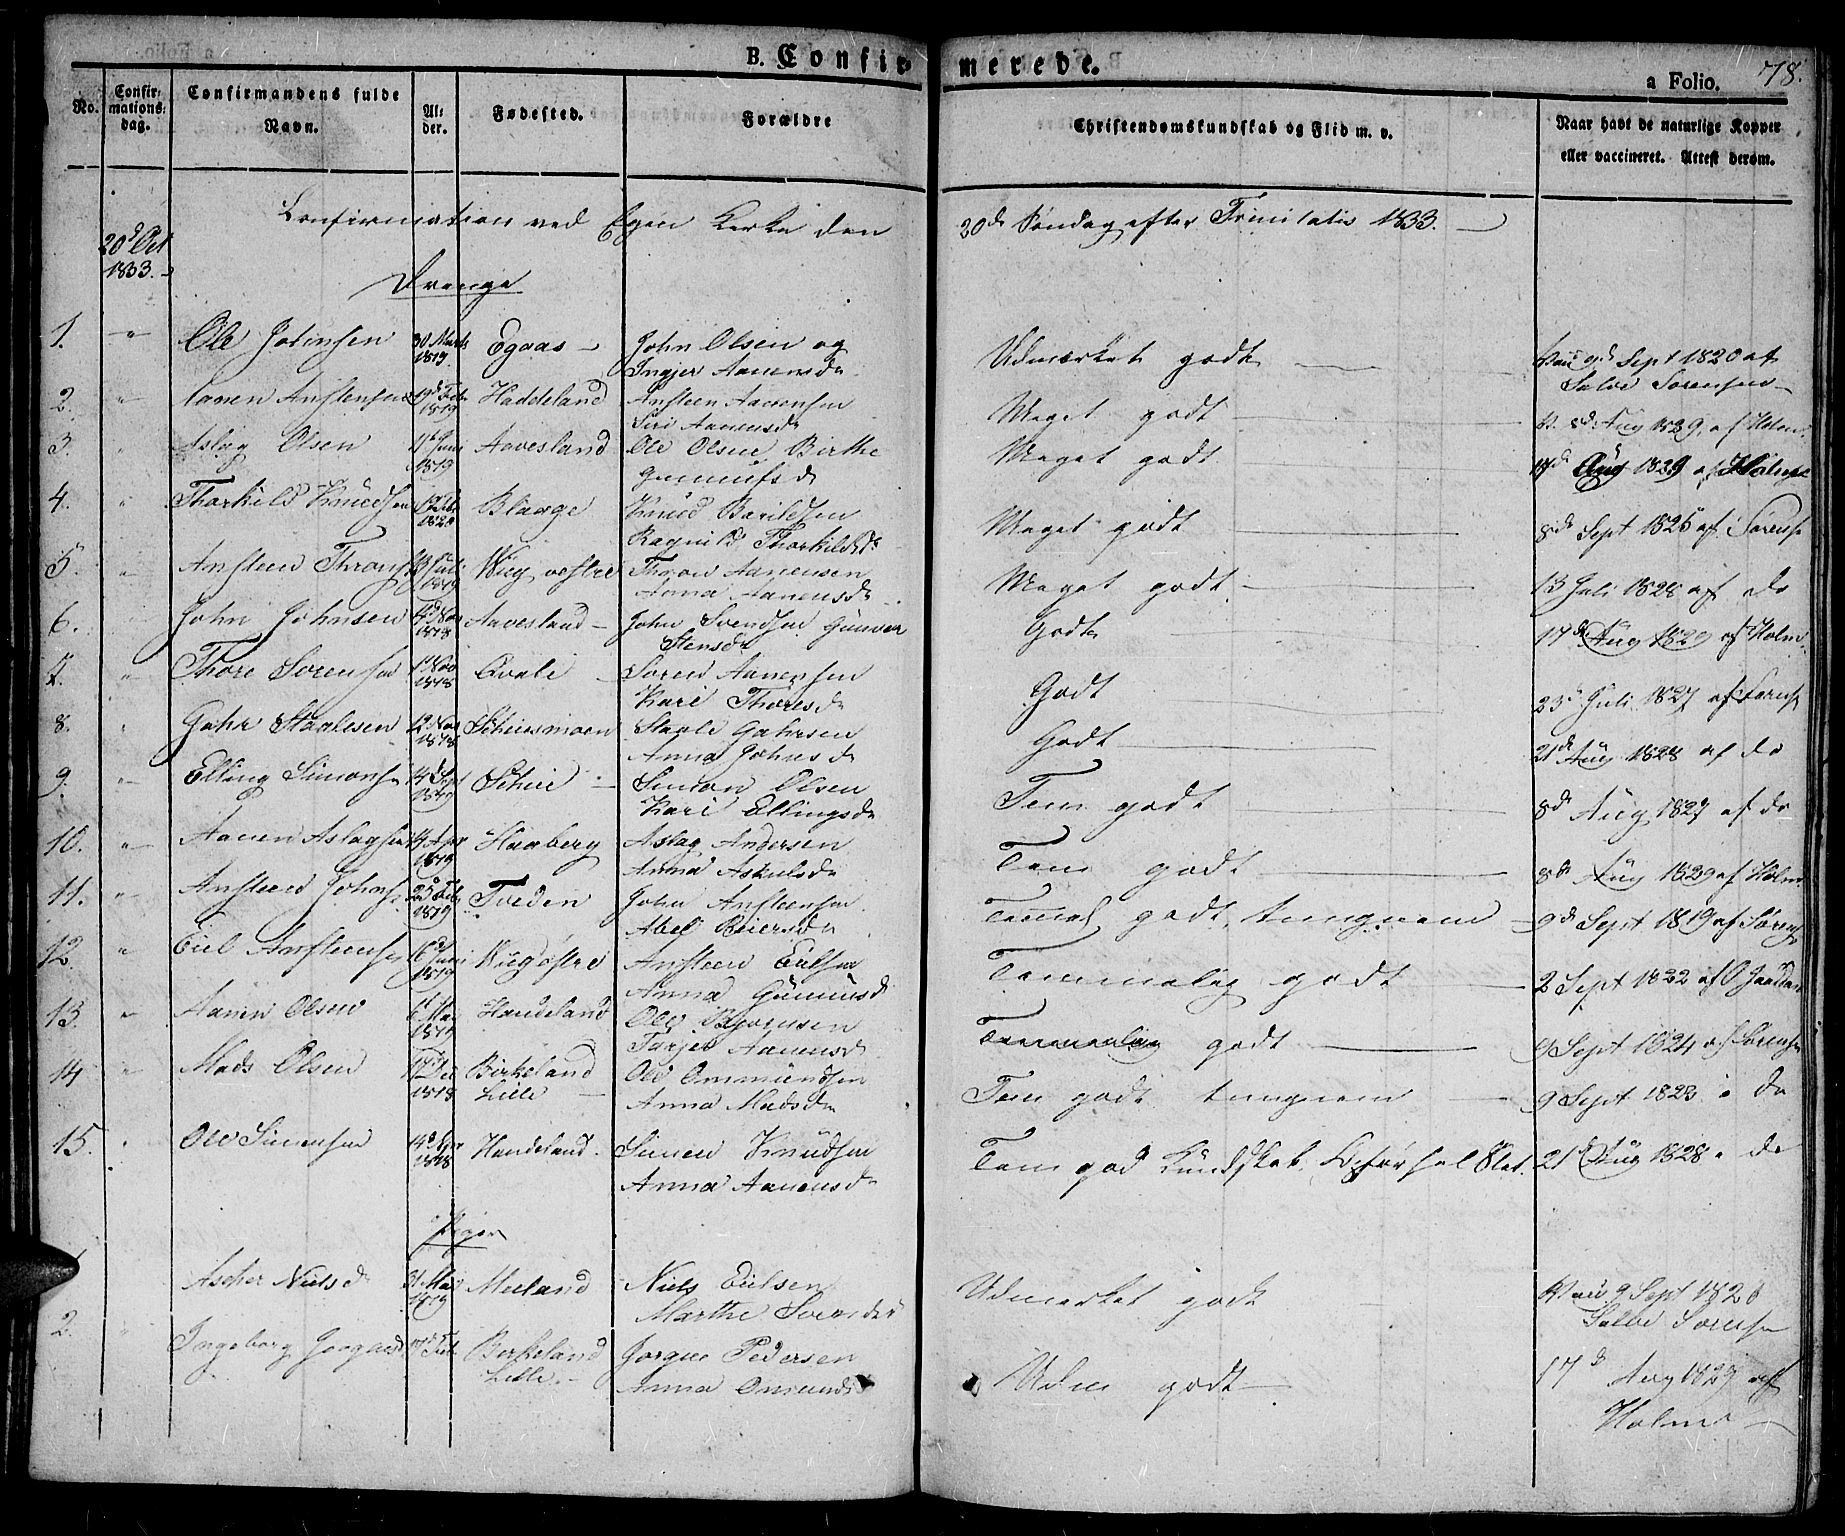 B. Confir-
merede.
a Folio. 78.
No.
Confir-
mations-
dag.
Confirmandens fulde
Navn.
Al-
der.
Fødested.
Forældre
Christendomskundskab og Flid m. v.
Naar havt de naturlige Kopper
eller vaccineret. Attest derom.
20d Oct
1833.
Confirmation ved Egen Kirke den
20de Søndag efter Trinitatis 1833.
Drenge
1. " Ole Johnsen 30 Marts 1819 Egaas John Olsen og
Ingjer Aanensd
Udmærket godt
Vac 9d Sept 1820 af
Salve Sørensen
2. " Aanen Ansteensen 19d Feb 1819 Haddeland Ansteen Aanensen
Siri Aanensd
Meget godt
V. 8d Aug 1829 af Holm
3. " Aslag Olsen 11 Juni 1819 Aavesland Ole Olsen Birthe
Gunnufsd
Meget godt
17d Aug 1829 af Holm
4. " Thorkild Knudsen Blange Knud
Ragnild Thorkildsd
Meget godt
8d Sept 1825 af Sørensen
5. " Ansteen Throns 13 Juli 1819 vestre Thron Aanensen
Anna Aanensd
Meget godt
13 Juli 1828 af do
6. John Johnsen 4d Nov 1818 Aavesland John Svendsen Gunvor
Stensd
Godt
17d Aug 1829 af Holm
7. " Thore Sørensen 1d Nov 1818 Qvale Søren Aanensen
Kari Thoresd
Godt
23d Juli 1827 af Sørens
8. " Gahr Staalesen 12 Nov 1818 Scheiesmoen Staale Gahrsen
Anna Johnsd
Godt
21d Aug 1828 af do
9. " Elling Simonsen 14 Sept Scheie Simon Olsen
Kari Ellingsd
Tem godt
8d Aug 1827 af do
10. " Aanen Aslagsen 14 Apr 1819 Haaberg Aslag Andersen
Anna
Tem godt
8d Aug 1829 af Holm
11. " Ansteen Johns 25 Feb 1819 Tveden John Ansteensen
Abel Reiersd
godt, tungnem
9d Sept 1819 af Sørens
12. " Eiel Ansteensen 6d Juni 1819 østre Ansteen Eielsen
Anna Gunnusd
Temmelig godt
2 Sept 1822 af
13. " Aanen Olsen 6 Mai 1819 Handeland Ole Bjørnsen
Tarjer Aanensd
Temmelig godt
9 Sept 1824 af Sørensen
14 " Mads Olsen 17 Dec 1818 Birkeland
Lille
Ole Ommundsen
Anna Madsd
Tem godt tungnem
9 Sept 1823 " do
15. " Ole Simensen 14d 1818 Handeland. Simen Knudsen
Anna Aanensd
Tem god Kundskab, Opførsel Slet.
21d Aug 1828 " do
Piger
1 Ascher Nielsd 31 Mai 1819 Meeland Niels Eielsen
Marthe
Udmærket godt
Vac 9 Sept 1820
Salve Sørensen
2. " Ingeborg Jørgensd 17d Feb Birkeland
Lille.
Jørgen Pedersen
Anna Omunds
Udm godt
17d Aug 1829 af
Holm